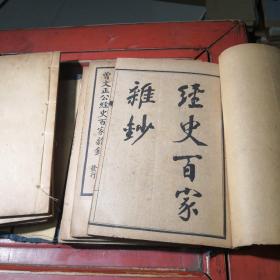 經史百家
雜鈔
曾文正公經史百家雜鈔
發行